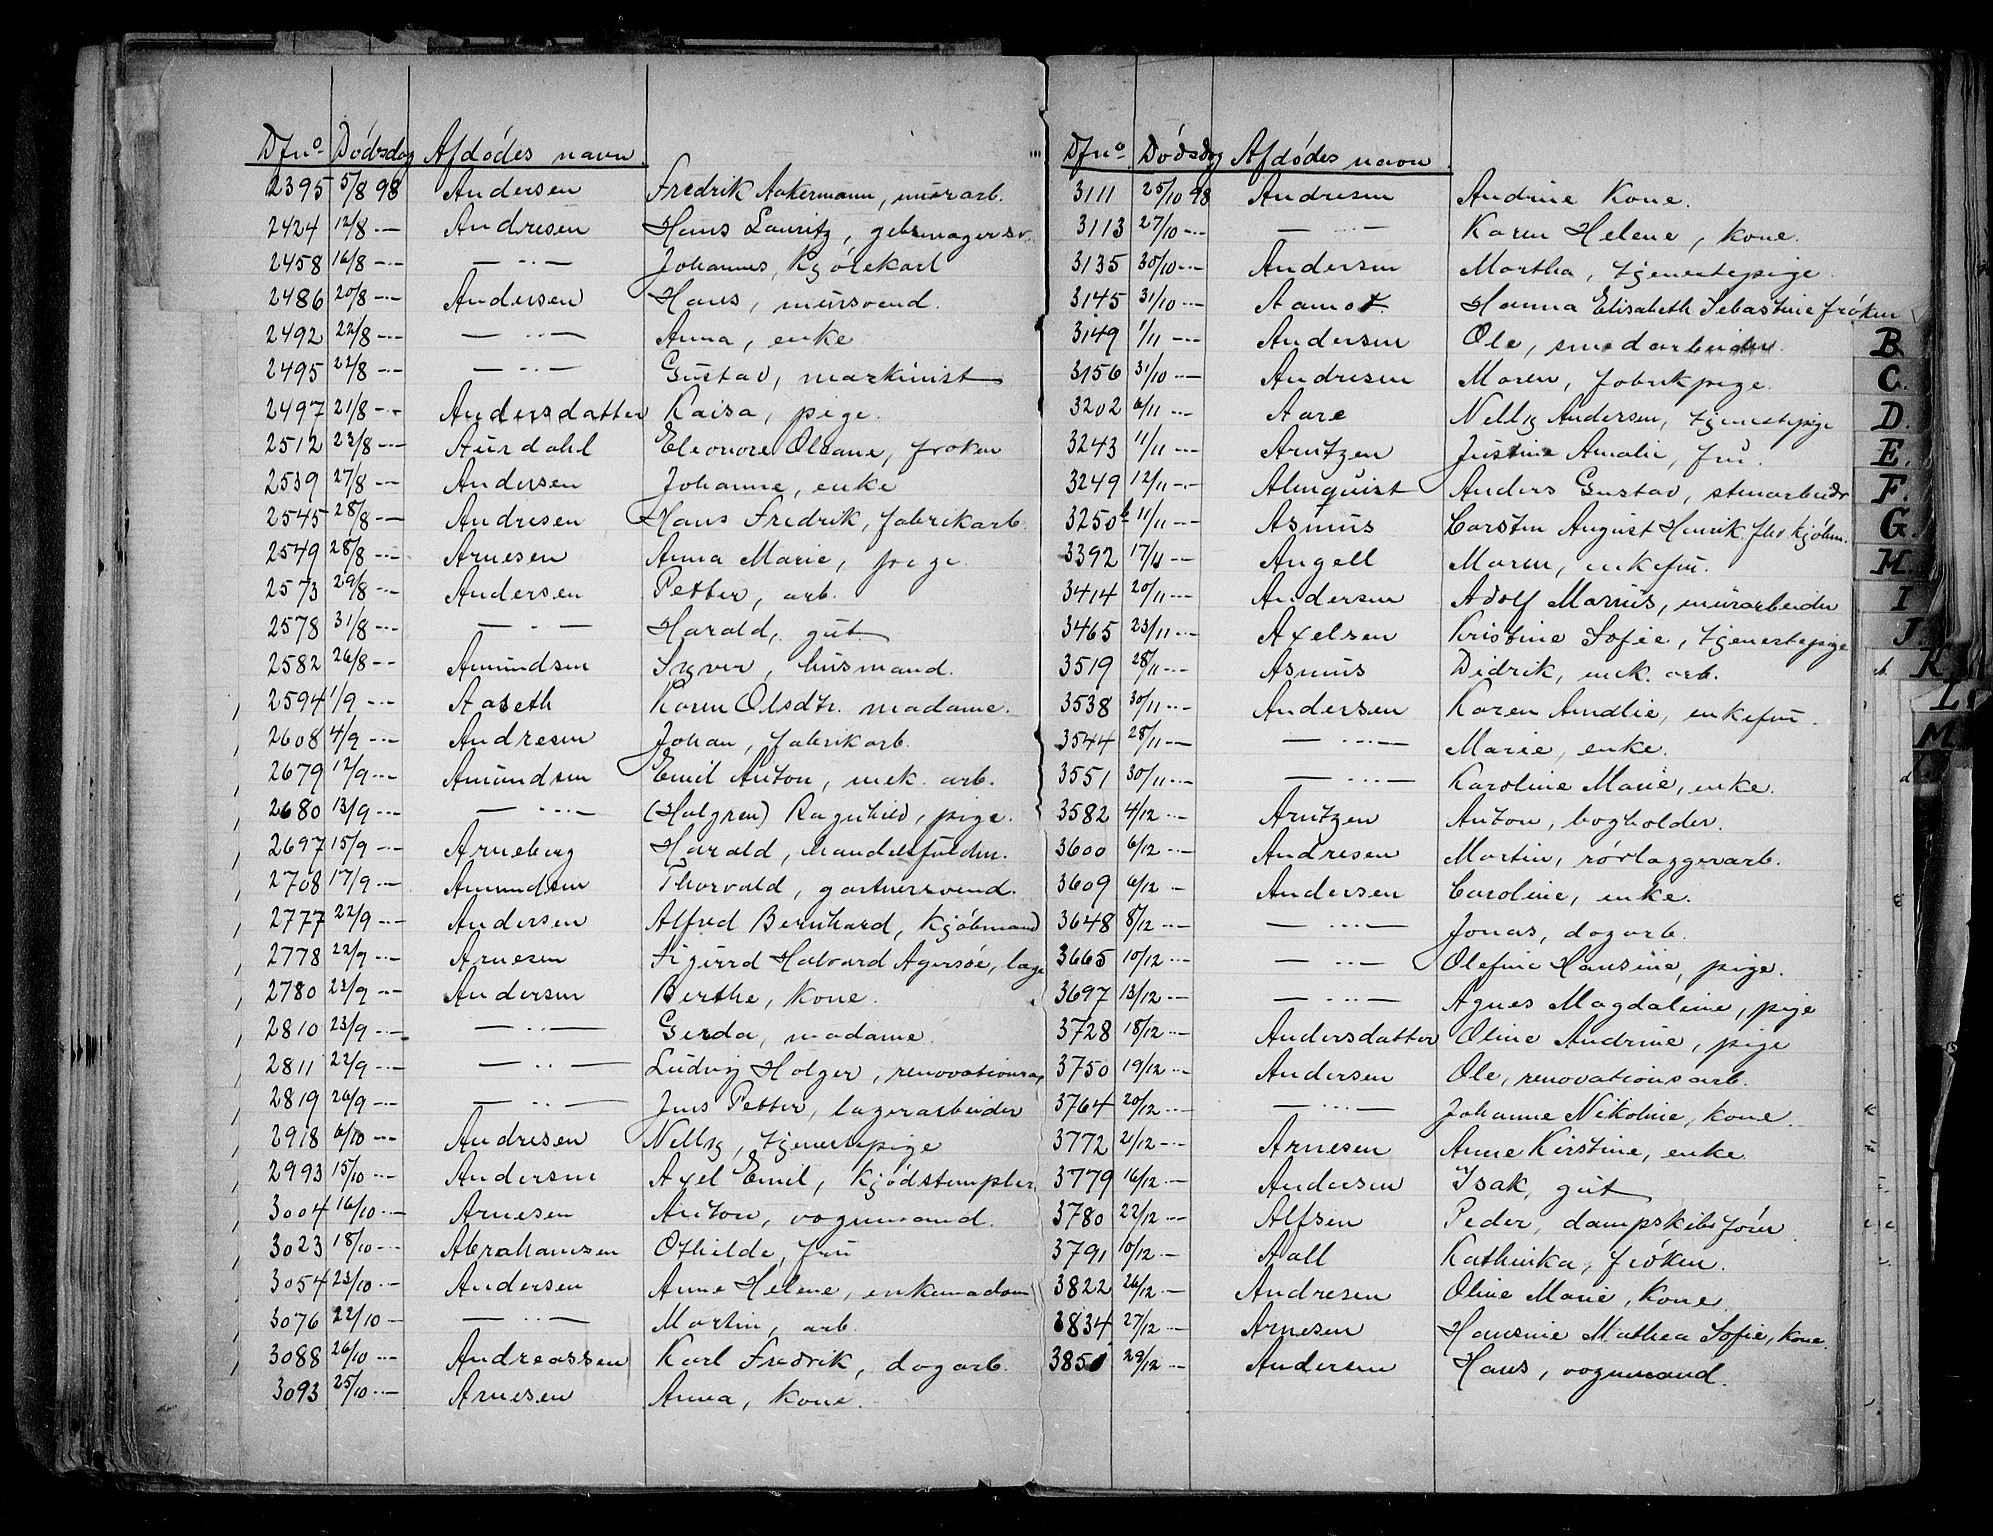 Dfno Dødsdag Afdødes navn.
2395 5/8 98 Andersen Fredrik Ackermann, murarb.
2424 12/8 -"- Andresen Hans Lauritz,
2458 16/8 -"- — " — Johannes, Kjørekarl
2486 20/8 -"- Andersen Hans, mursvend.
2492 22/8 -"- — " — Anna, enke
2495 22/8 -"- — " — Gustav, maskinist
2497 21/8 -"- Andersdatter Kaisa, pige.
2512 23/8 -"- Aurdahl Eleonore Oleane, frøken
2539 27/8 -"- Andersen Johanne, enke
2545 28/8 -"- Andresen Hans Fredrik, fabrikarb.
2549 28/8 -"- Arnesen Anna Marie, pige.
2573 29/8 -"- Andersen Petter, arb.
2578 31/8 -"- — " — Harald, gut
2582 26/8 -"- Amundsen Syver, husmand.
2594 1/9 -"- Aaseth Karen Olsdtr. madame.
2608 4/9 -"- Andresen Johan, fabrikarb.
2679 12/9 -"- Amundsen Emil Anton, mek. arb.
2680 13/9 -"- — " — (Holgren) Ragnhild, pige.
2697 15/9 -"- Arneberg Harald, handelsfuldm.
2708 17/9 -"- Amundsen Thorvald, gartnersvend.
2777 22/9 -"- Andersen Alfred Bernhard, Kjøbmand
2778 22/9 -"- Arnesen Sigurd Halvard Agersøe, læge
2780 22/9 -"- Andersen Berthe, Kone.
2810 23/9 -"- — " — Gerda, madame.
2811 22/9 -"- — " — Ludvig Holger,
2819 26/9 -"- — " — Jens Petter, lagerarbeider
2918 6/10 -"- Andresen Nelly, tjenestepige
2993 15/10 -"- Andersen Axel Emil, Kjødstempler
3004 16/10 -"- Arnesen Anton, vognmand.
3023 18/10 -"- Abrahamsen Othilde, fru
3054 23/10 -"- Andersen Anne Helene, enkemadam
3076 22/10 -"- — " — Martin, arb.
3088 26/10 -"- Andreassen Karl Fredrik, dagarb.
3093 25/10 -"- Arnesen Anna, Kone.
Dfno Dødsdag Afdødes navn.
3111 25/10 98 Andresen Andrine Kone.
3113 27/10 -"- — " — Karen Helene, Kone.
3135 30/10 -"- Andersen Martha, tjenestepige.
3145 31/10 -"- Aamot. Hanna Elisabeth Sebastine frøken
3149 1/11 -"- Andersen Ole, smedarbeider.
3156 31/10 -"- Andresen Maren, fabrikpige.
3202 6/11 -"- Aare Nelly Andersen, tjenestepige
3243 11/11 -"- Arntzen Justine Amalie, fru.
3249 12/11 -"- Almquist Anders Gustav, stenarbeidr
3250b 11/11 -"- Asmus Carsten August Henrik, fhv. kjøbm.
3392 17/11 -"- Angell Maren, enkefru.
3414 20/11 -"- Andersen Adolf Marius, murarbeider
3465 23/11 -"- Axelsen Kristine Sofie, tjenestepige
3519 28/11 -"- Asmus Didrik, mek. arb.
3538 30/11 -"- Andersen Karen Amalie, enkefru.
3544 28/11 -"- — " — Marie, enke.
3551 30/11 -"- — " — Karoline Marie, enke.
3582 4/12 -"- Arntzen Anton, bogholder.
3600 6/12 -"- Andresen Martin, rørlæggerarb.
3609 6/12 -"- Andersen Caroline, enke.
3648 8/12 -"- — " — Jonas, dagarb.
3665 10/12 -"- — " — Olefine Hansine, pige.
3697 13/12 -"- — " — Agnes Magdalene, pige
3728 18/12 -"- Andersdatter Oline Andrine, pige
3750 19/12 -"- Andersen Ole, renovationsarb.
3764 20/12 -"- — " — Johanne Nikoline, Kone.
3772 21/12 -"- Arnesen Anne Kirstine, enke.
3779 16/12 -"- Andersen Isak, gut
3780 22/12 -"- Alfsen Peder, dampskibsfører
3791 10/12 -"- Aall Kathinka, frøken.
3822 26/12 -"- Andresen Oline Marie, Kone
3834 27/12 -"- Arnesen Hansine Mathea Sofie, Kone.
3850 29/12 -"- Andersen Hans, vognmand.
B.
C.
D.
E.
F.
G.
H.
I
J.
K
L
M